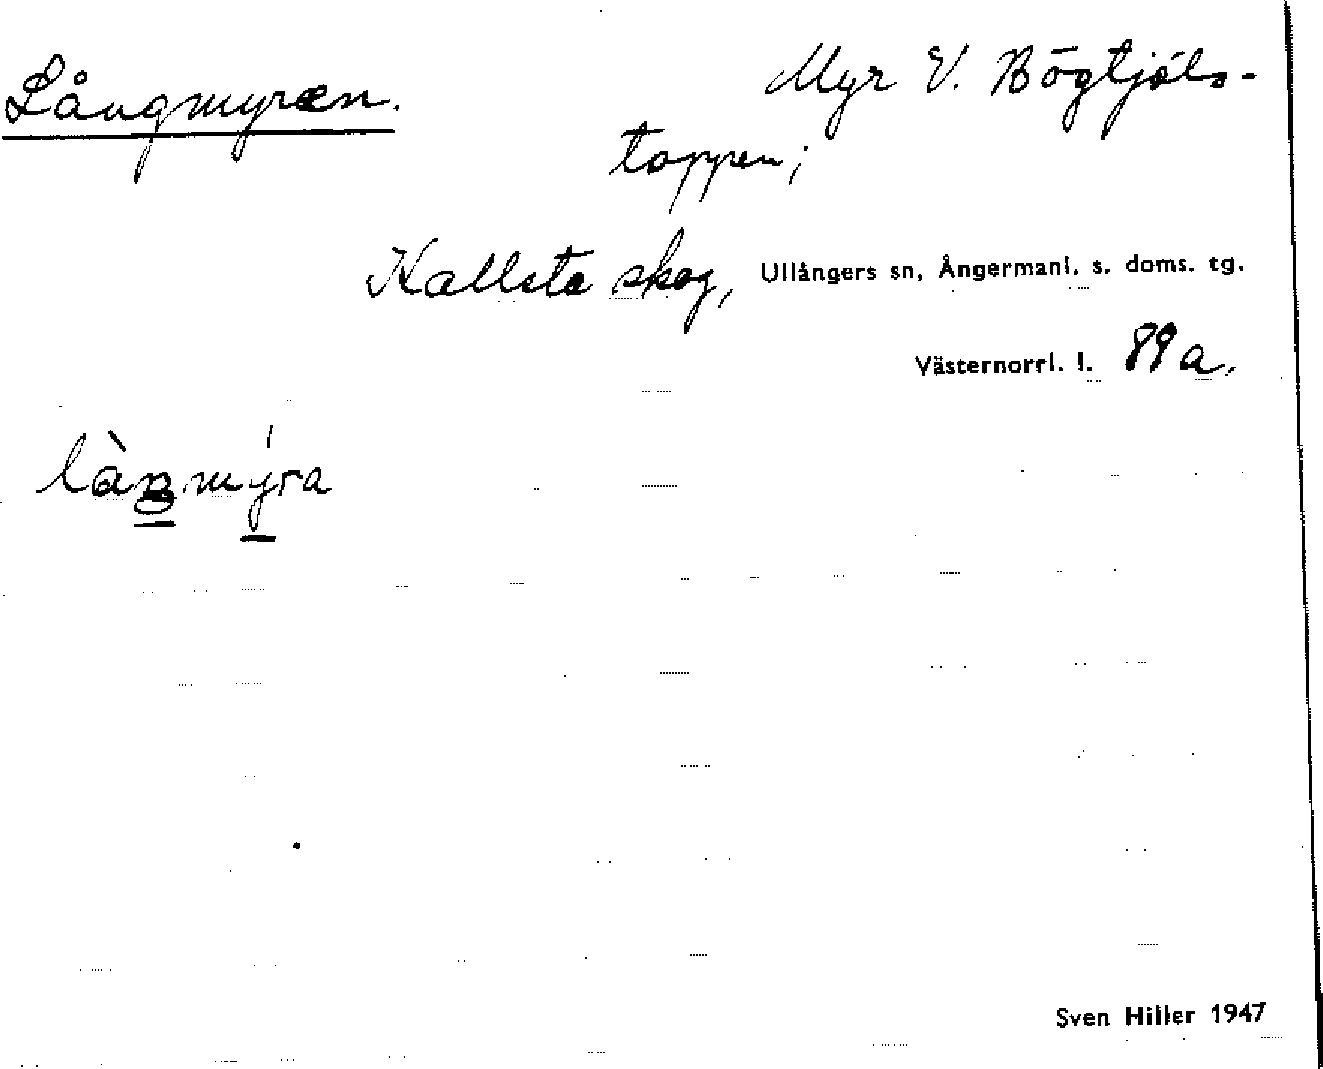 Långmyren.
Myr V. Bögtjäls-
toppen;
Kallsta skog, Ullångers sn, Ångermanl. s. doms. tg.
Västernorrl. l. 89 a.
Sven Hiller 1947